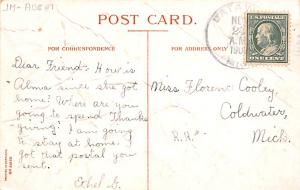 POST CARD.
FOR CORRESPONDENCE
FOR ADDRESS ONLY.
Dear Friend:- How is
Alma since she got
home? Where are you
going to spend Thanks-
giving? I am going
to stay at home. I
got that postal you
sent.
Ethel G.
Miss Florence Cooley,
Coldwater,
R.R. Mich.
NOV
22
ONE CENT